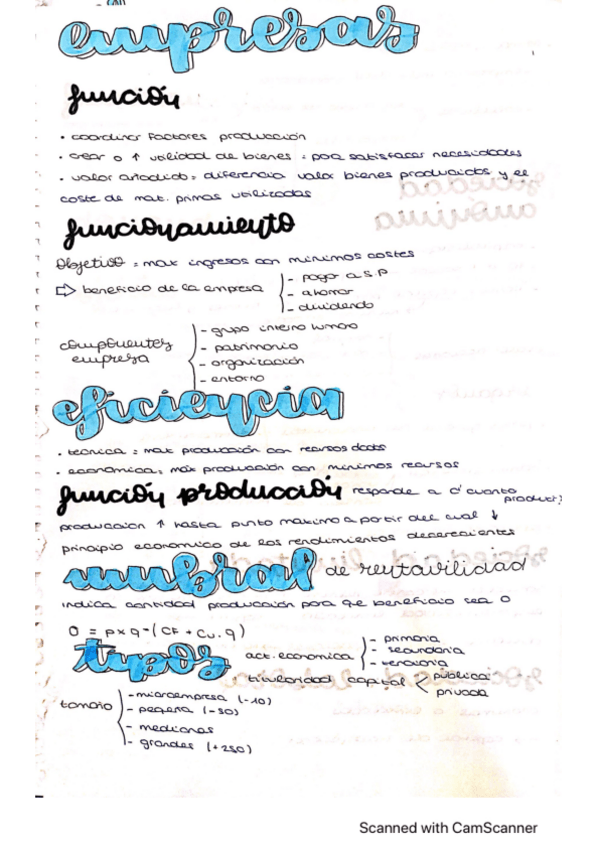 empresas
función
· coordinar factores producción
· crear o ↑ utilidad de bienes : para satisfacer necesidades
· valor añadido : diferencia valor bienes producidos y el
coste de mat. primas utilizadas
funcionamiento
Objetivo : max ingresos con mínimos costes
⇨ beneficio de la empresa
- pagar a S.P
- ahorrar
- dividendo
componentes
empresa
- grupo interno humano
- patrimonio
- organización
- entorno
eficiencia
· tecnica : max producción con recursos dados
· economica : máx producción con minimos recursos
función producción responde a c' cuanto
producir?
produccion ↑ hasta punto maximo a partir del cual ↓
principio economico de los rendimientos decrecientes
umbral de rentabilidad
indica cantidad producción para qe beneficio sea 0
0 = p x q - (CF + Cu . q)
tipos
act. economica
- primaria
- secundaria
- terciaria
titularidad capital < publica
privada
tamaño
- microempresa (-10)
- pequeña (-50)
- medianas
- grandes (+250)
Scanned with CamScanner